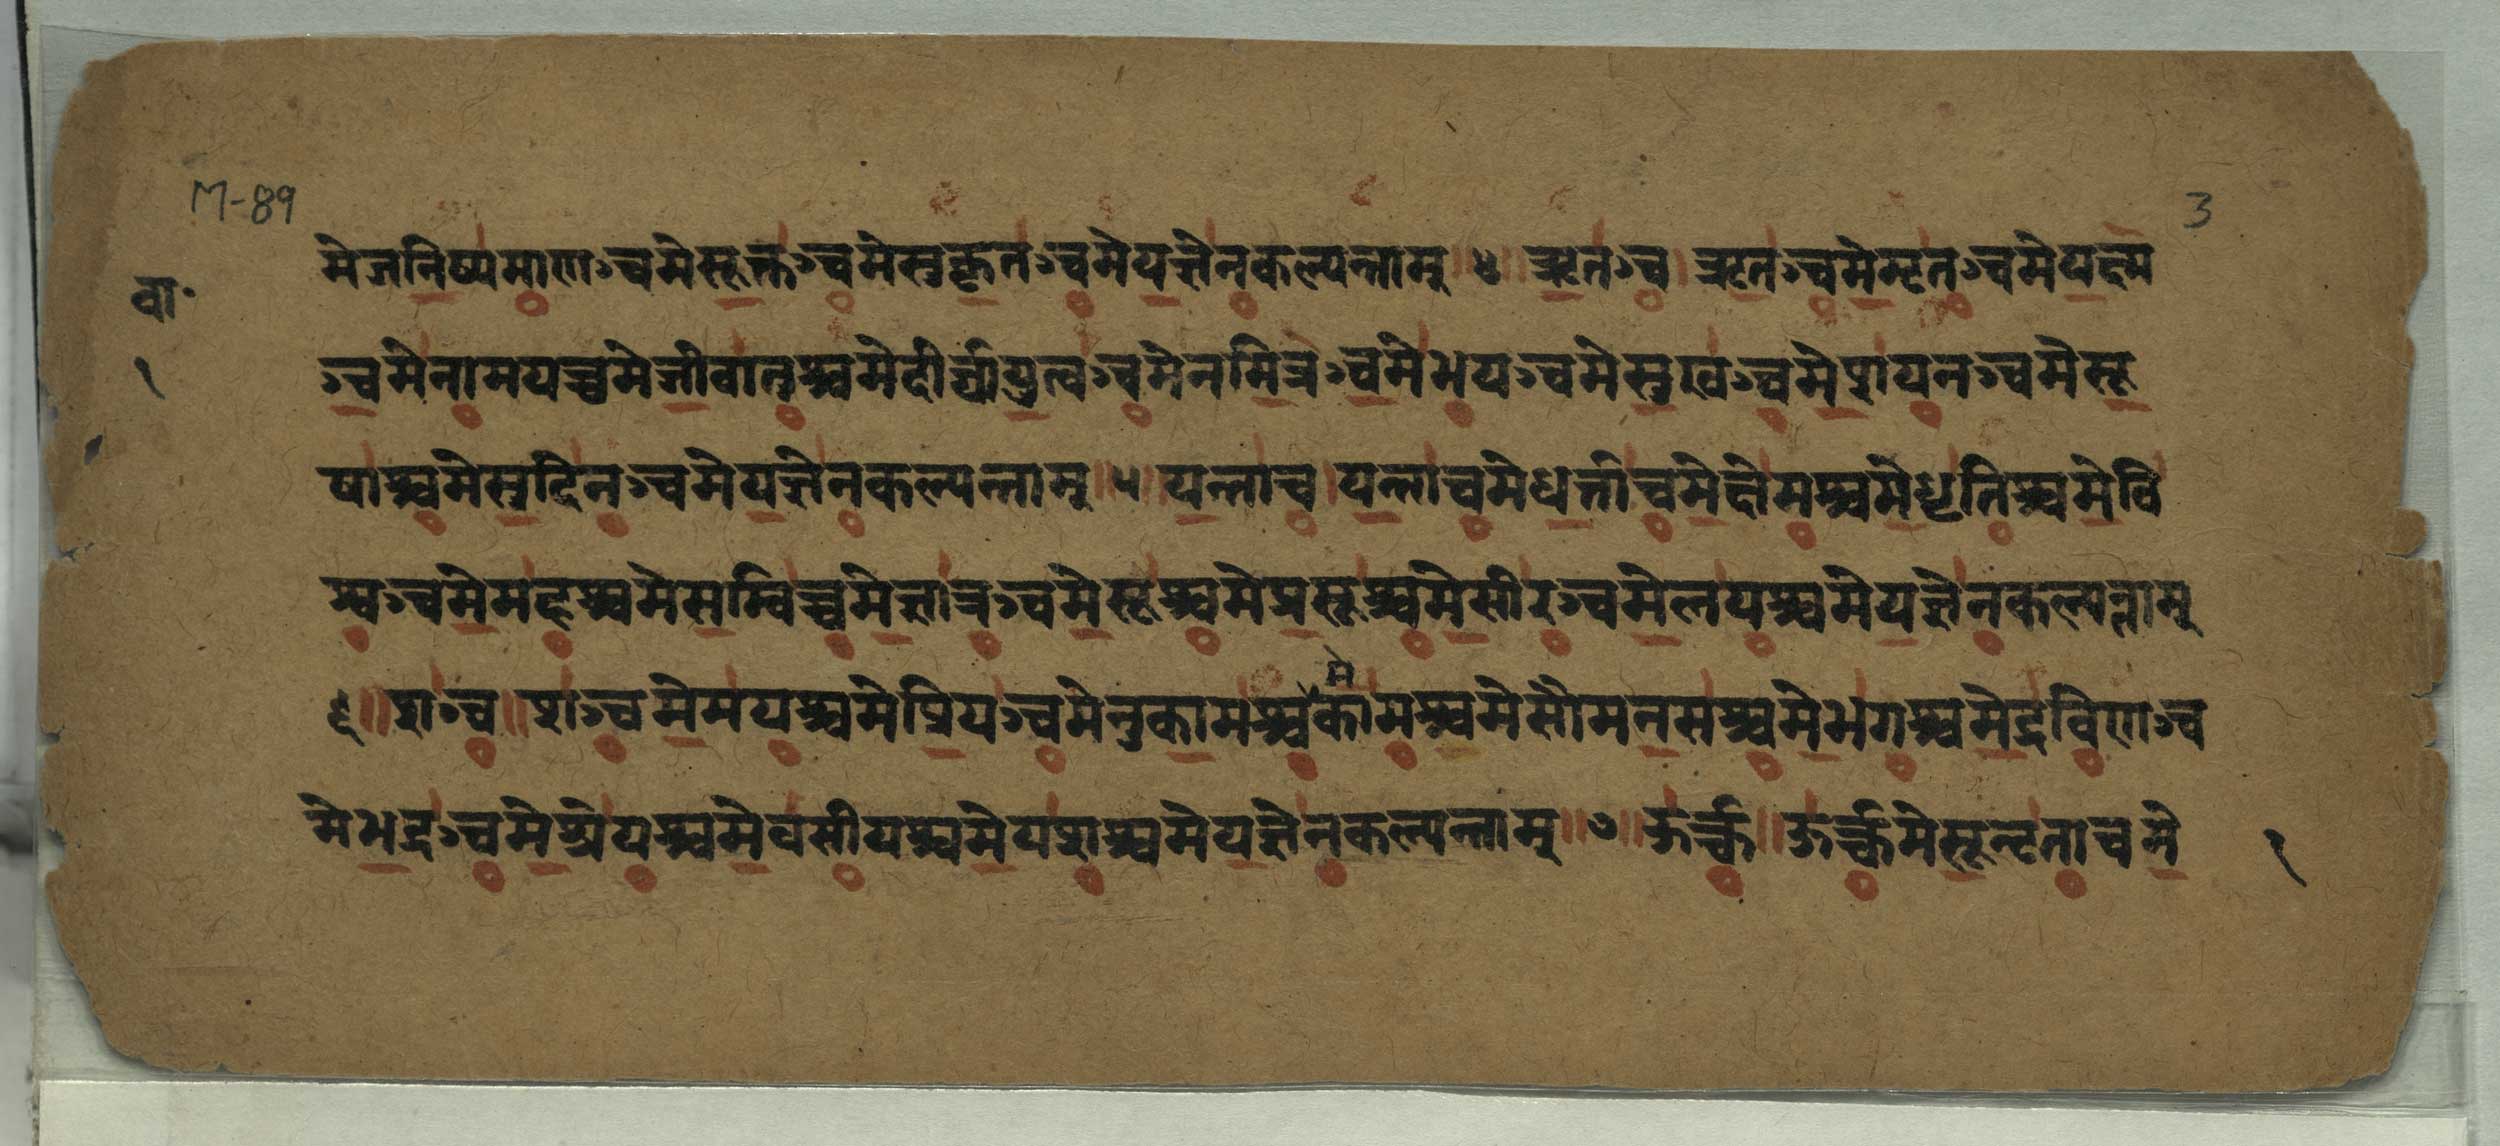 M-89
3
वा॰
१
मेजनिष्यमाणञ्चमेसूक्तञ्चमेसुकृतञ्चमेयज्ञेनकल्पन्ताम् ॥ ४ ॥ ऋतञ्च । ऋतञ्चमेमृतञ्चमेयक्ष्म
ञ्चमेनामयच्चमेजीवातुश्चमेदीर्घायुत्वञ्चमेनमित्रञ्चमेभयञ्चमेसुखञ्चमेशयनञ्चमेसू
षाश्चमेसुदिनञ्चमेयज्ञेनकल्पन्ताम् ॥ ५ ॥ यन्ताच । यन्ताचमेधर्त्ताचमेक्षेमश्चमेधृतिश्चमेवि
श्वञ्चमेमहश्चमेसम्विच्चमेज्ञात्रञ्चमेसूश्चमेप्रसूश्चमेसीरञ्चमेलयश्चमेयज्ञेनकल्पन्ताम्
६ ॥ शञ्च ॥ शञ्चमेमयश्चमेप्रियञ्चमेनुकामश्चमेकामश्चमेसौमनसश्चमेभगश्चमेद्रविणञ्च
मेभद्रञ्चमेश्रेयश्चमेवसीयश्चमेयशश्चमेयज्ञेनकल्पन्ताम् ॥ ७ ॥ ऊर्क्च ॥ ऊर्क्चमेसूनृताचमे
१